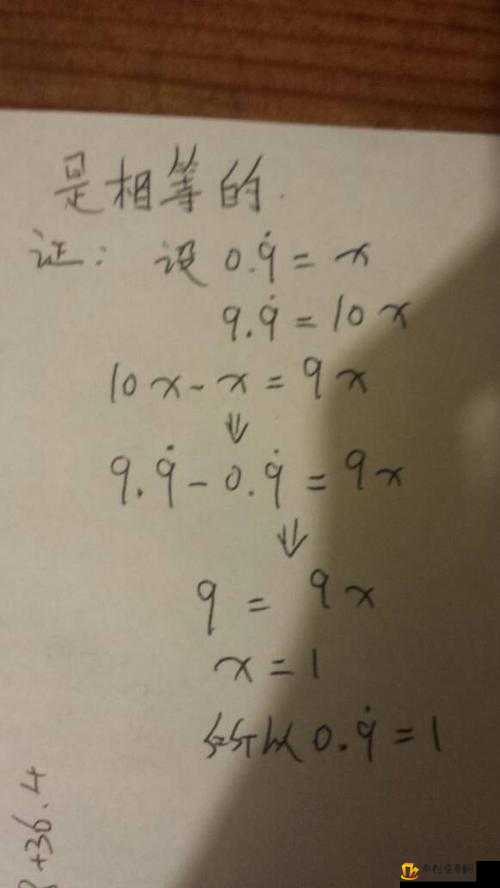 是相等的.
证: 设 0.9̇ = x
9.9̇ = 10x
10x - x = 9x
⇓
9.9̇ - 0.9̇ = 9x
⇓
9 = 9x
x = 1
所以 0.9̇ = 1
+36.4